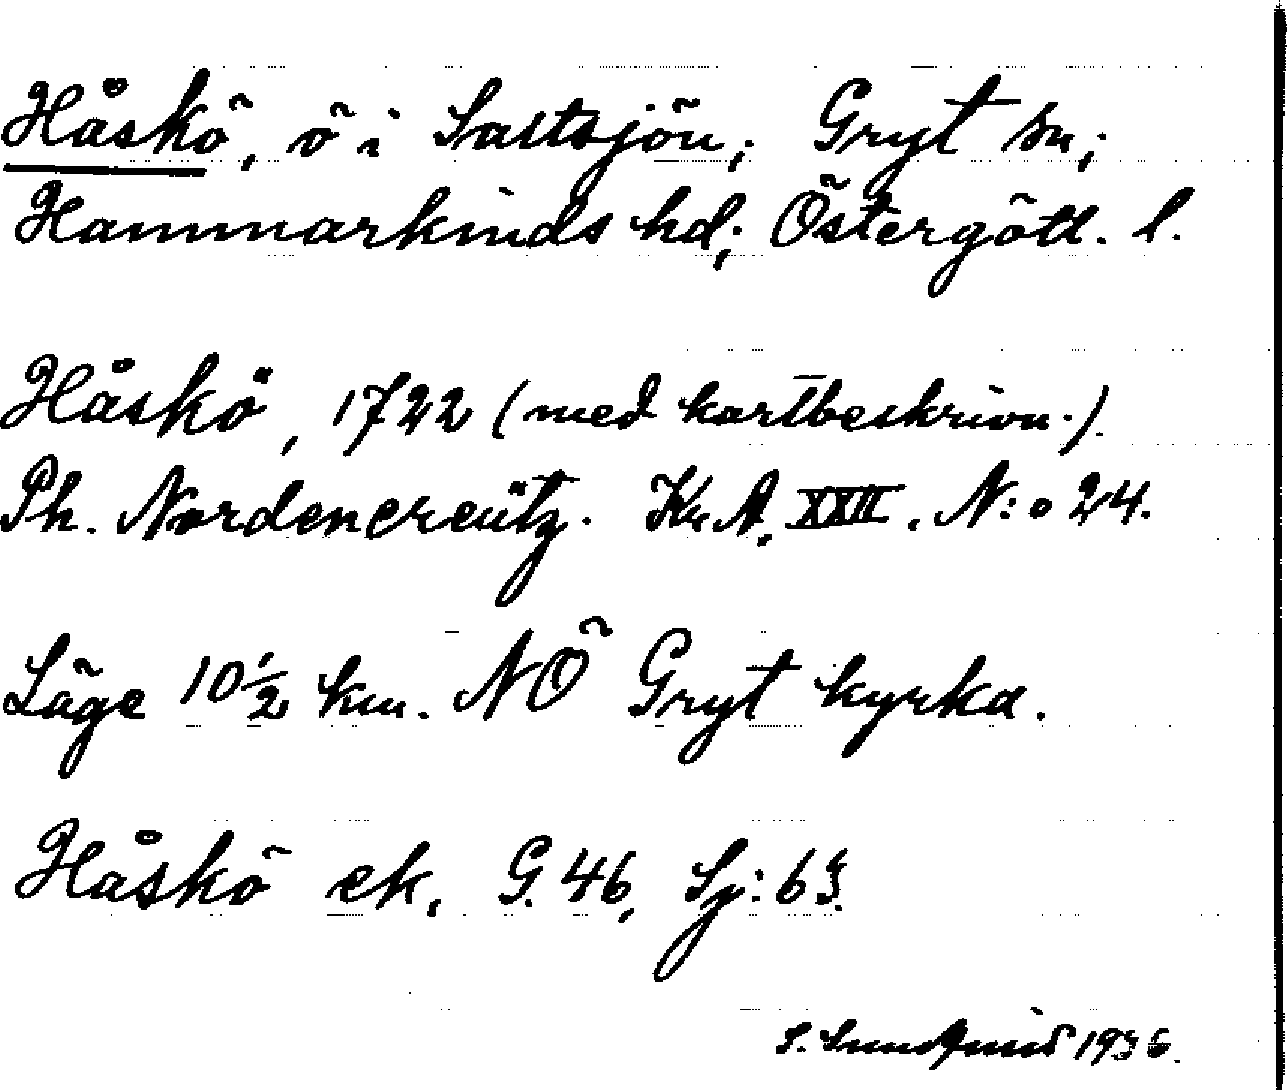 Håskö, ö i Saltsjön; Gryt sn;
Hammarkinds hd; Östergötl. l.
Håskö, 1722 (med kartbeskrivn.).
Ph. Nordencreütz. Kr. A. XXII. N:o 24.
Läge 10 1/2 km. NÖ Gryt kyrka.
Håskö ek. G. 46, Sj: 63.
S. Sundquist 1936.